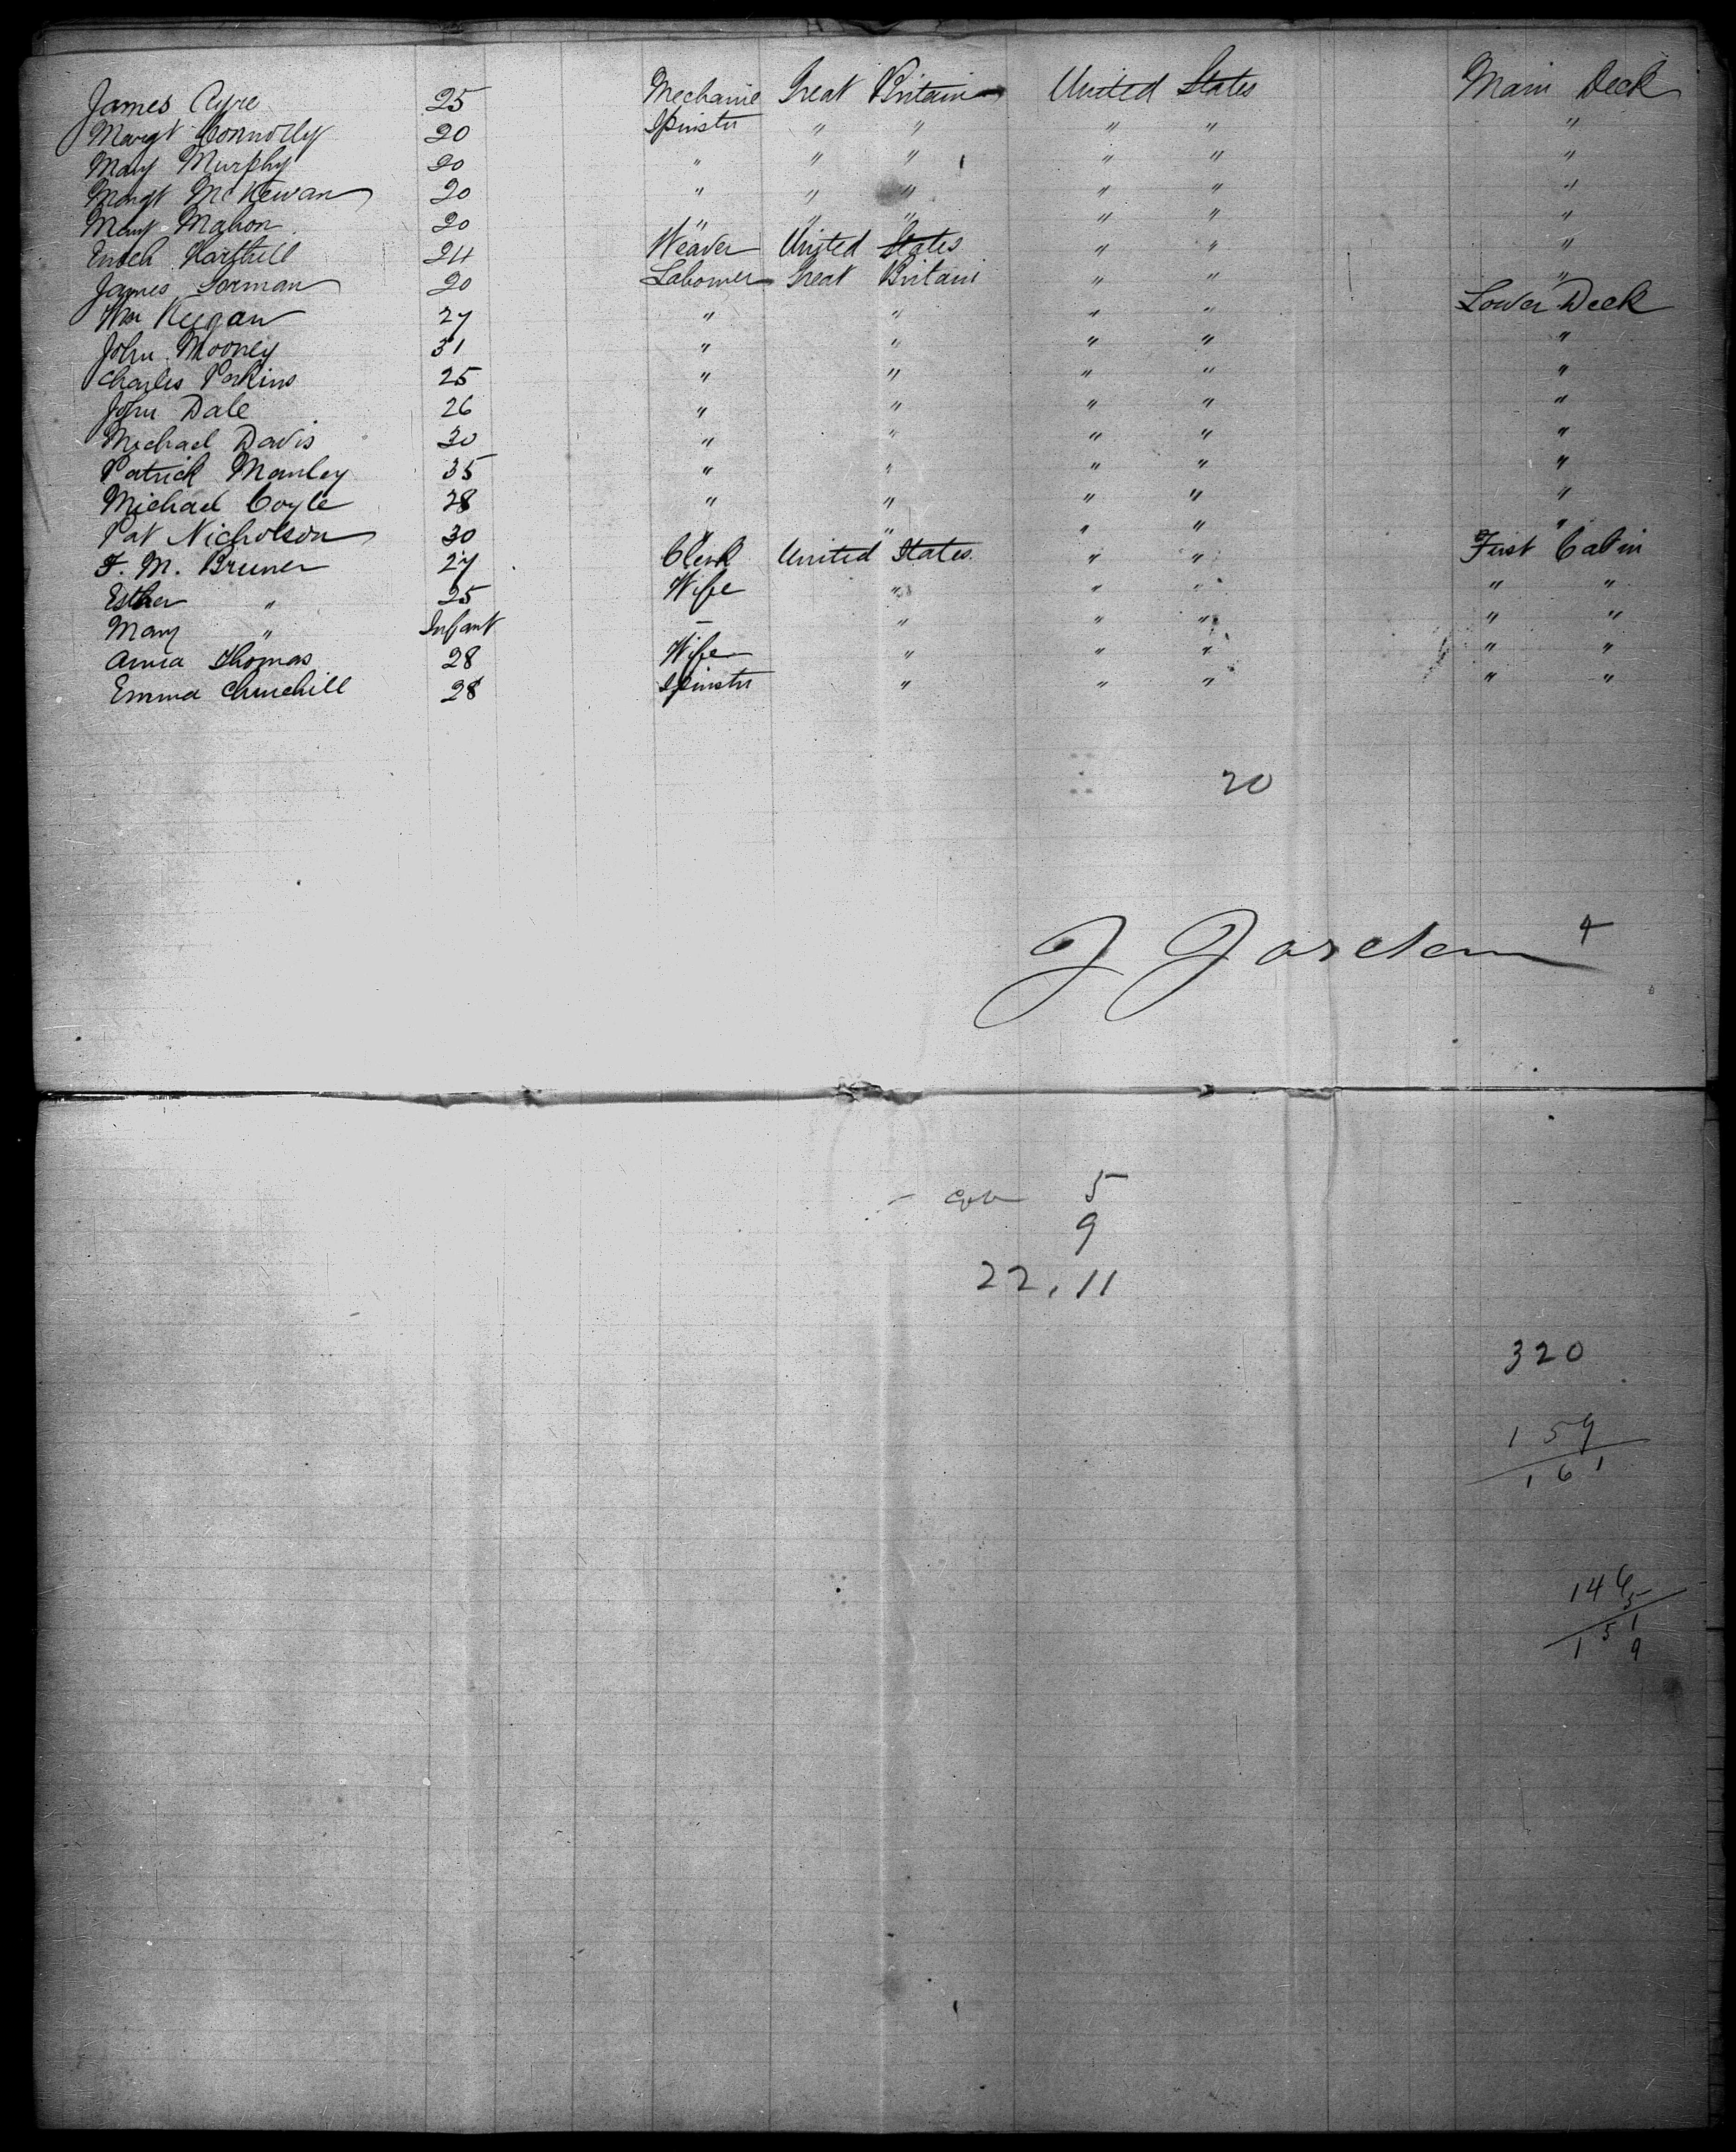 James Ayre 25 Mechanic Great Britain United States Main Deck
Margt Connolly 20 Spinster " " " " "
Mary Murphy 20 " " " " " "
Margt McKewan 20 " " " " " "
Mary Mahon 20 " " " " " "
Enoch 24 Weaver United States " " "
James Gorman 20 Labourer Great Britain " " "
Wm Keegan 27 " " " " Lower Deck
John Mooney 31 " " " " "
Charles Perkins 25 " " " " "
John Dale 26 " " " " "
Michael Davis 30 " " " " "
Patrick Manley 35 " " " " "
Michael Coyle 28 " " " " "
Pat Nicholson 30 " " " " "
F. M. Bruner 27 Clerk United States " " First Cabin
Esther " 25 Wife " " " " "
Mary " Infant — " " " " "
Anna Thomas 28 Wife " " " " "
Emma Churchill 28 Spinster " " " " "
20
4
5
9
22, 11
320
159
161
146
5
151
9